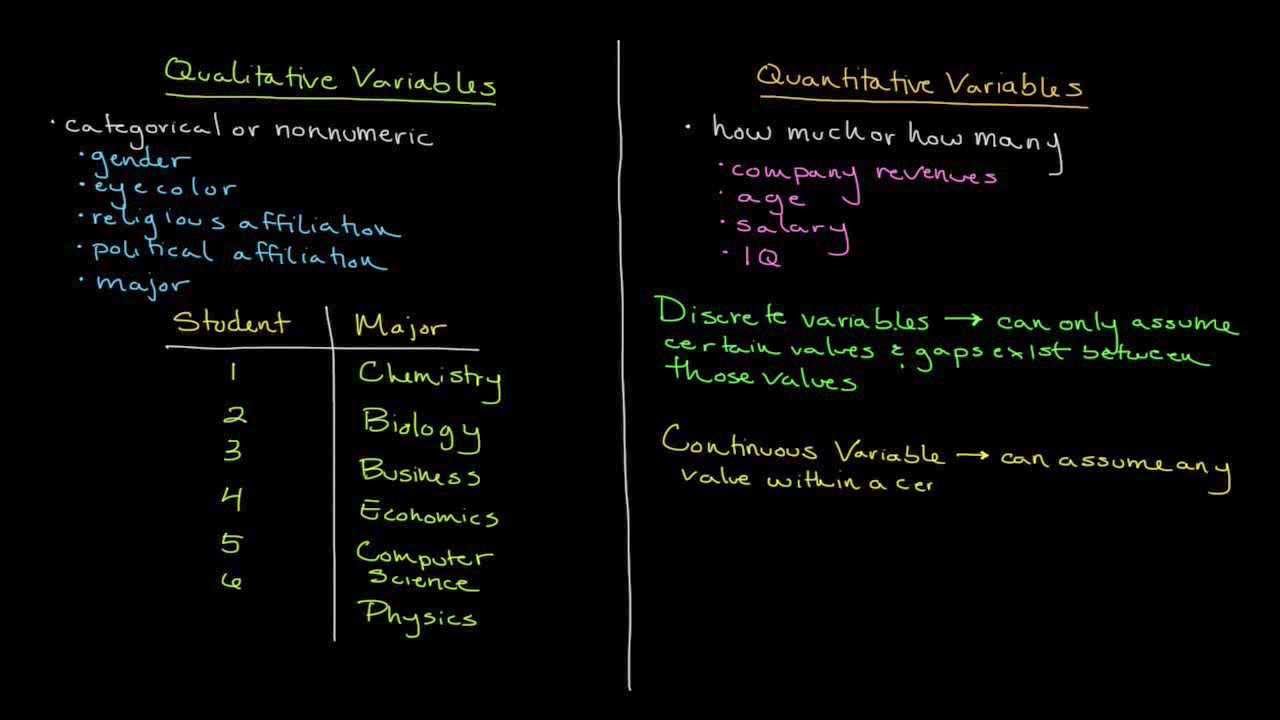 Qualitative Variables
· categorical or nonnumeric
· gender
· eye color
· religious affiliation
· political affiliation
· major
Student Major
1 Chemistry
2 Biology
3 Business
4 Economics
5 Computer
Science
6 Physics
Quantitative Variables
· how much or how many
· company revenues
· age
· salary
· IQ
Discrete variables → can only assume
certain values & gaps exist between
those values
Continuous Variable → can assume any
value within a cer